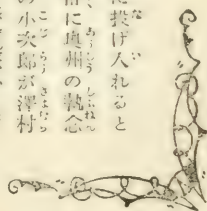 に投げ入れると
に奥州の執念
の小次郎が澤村